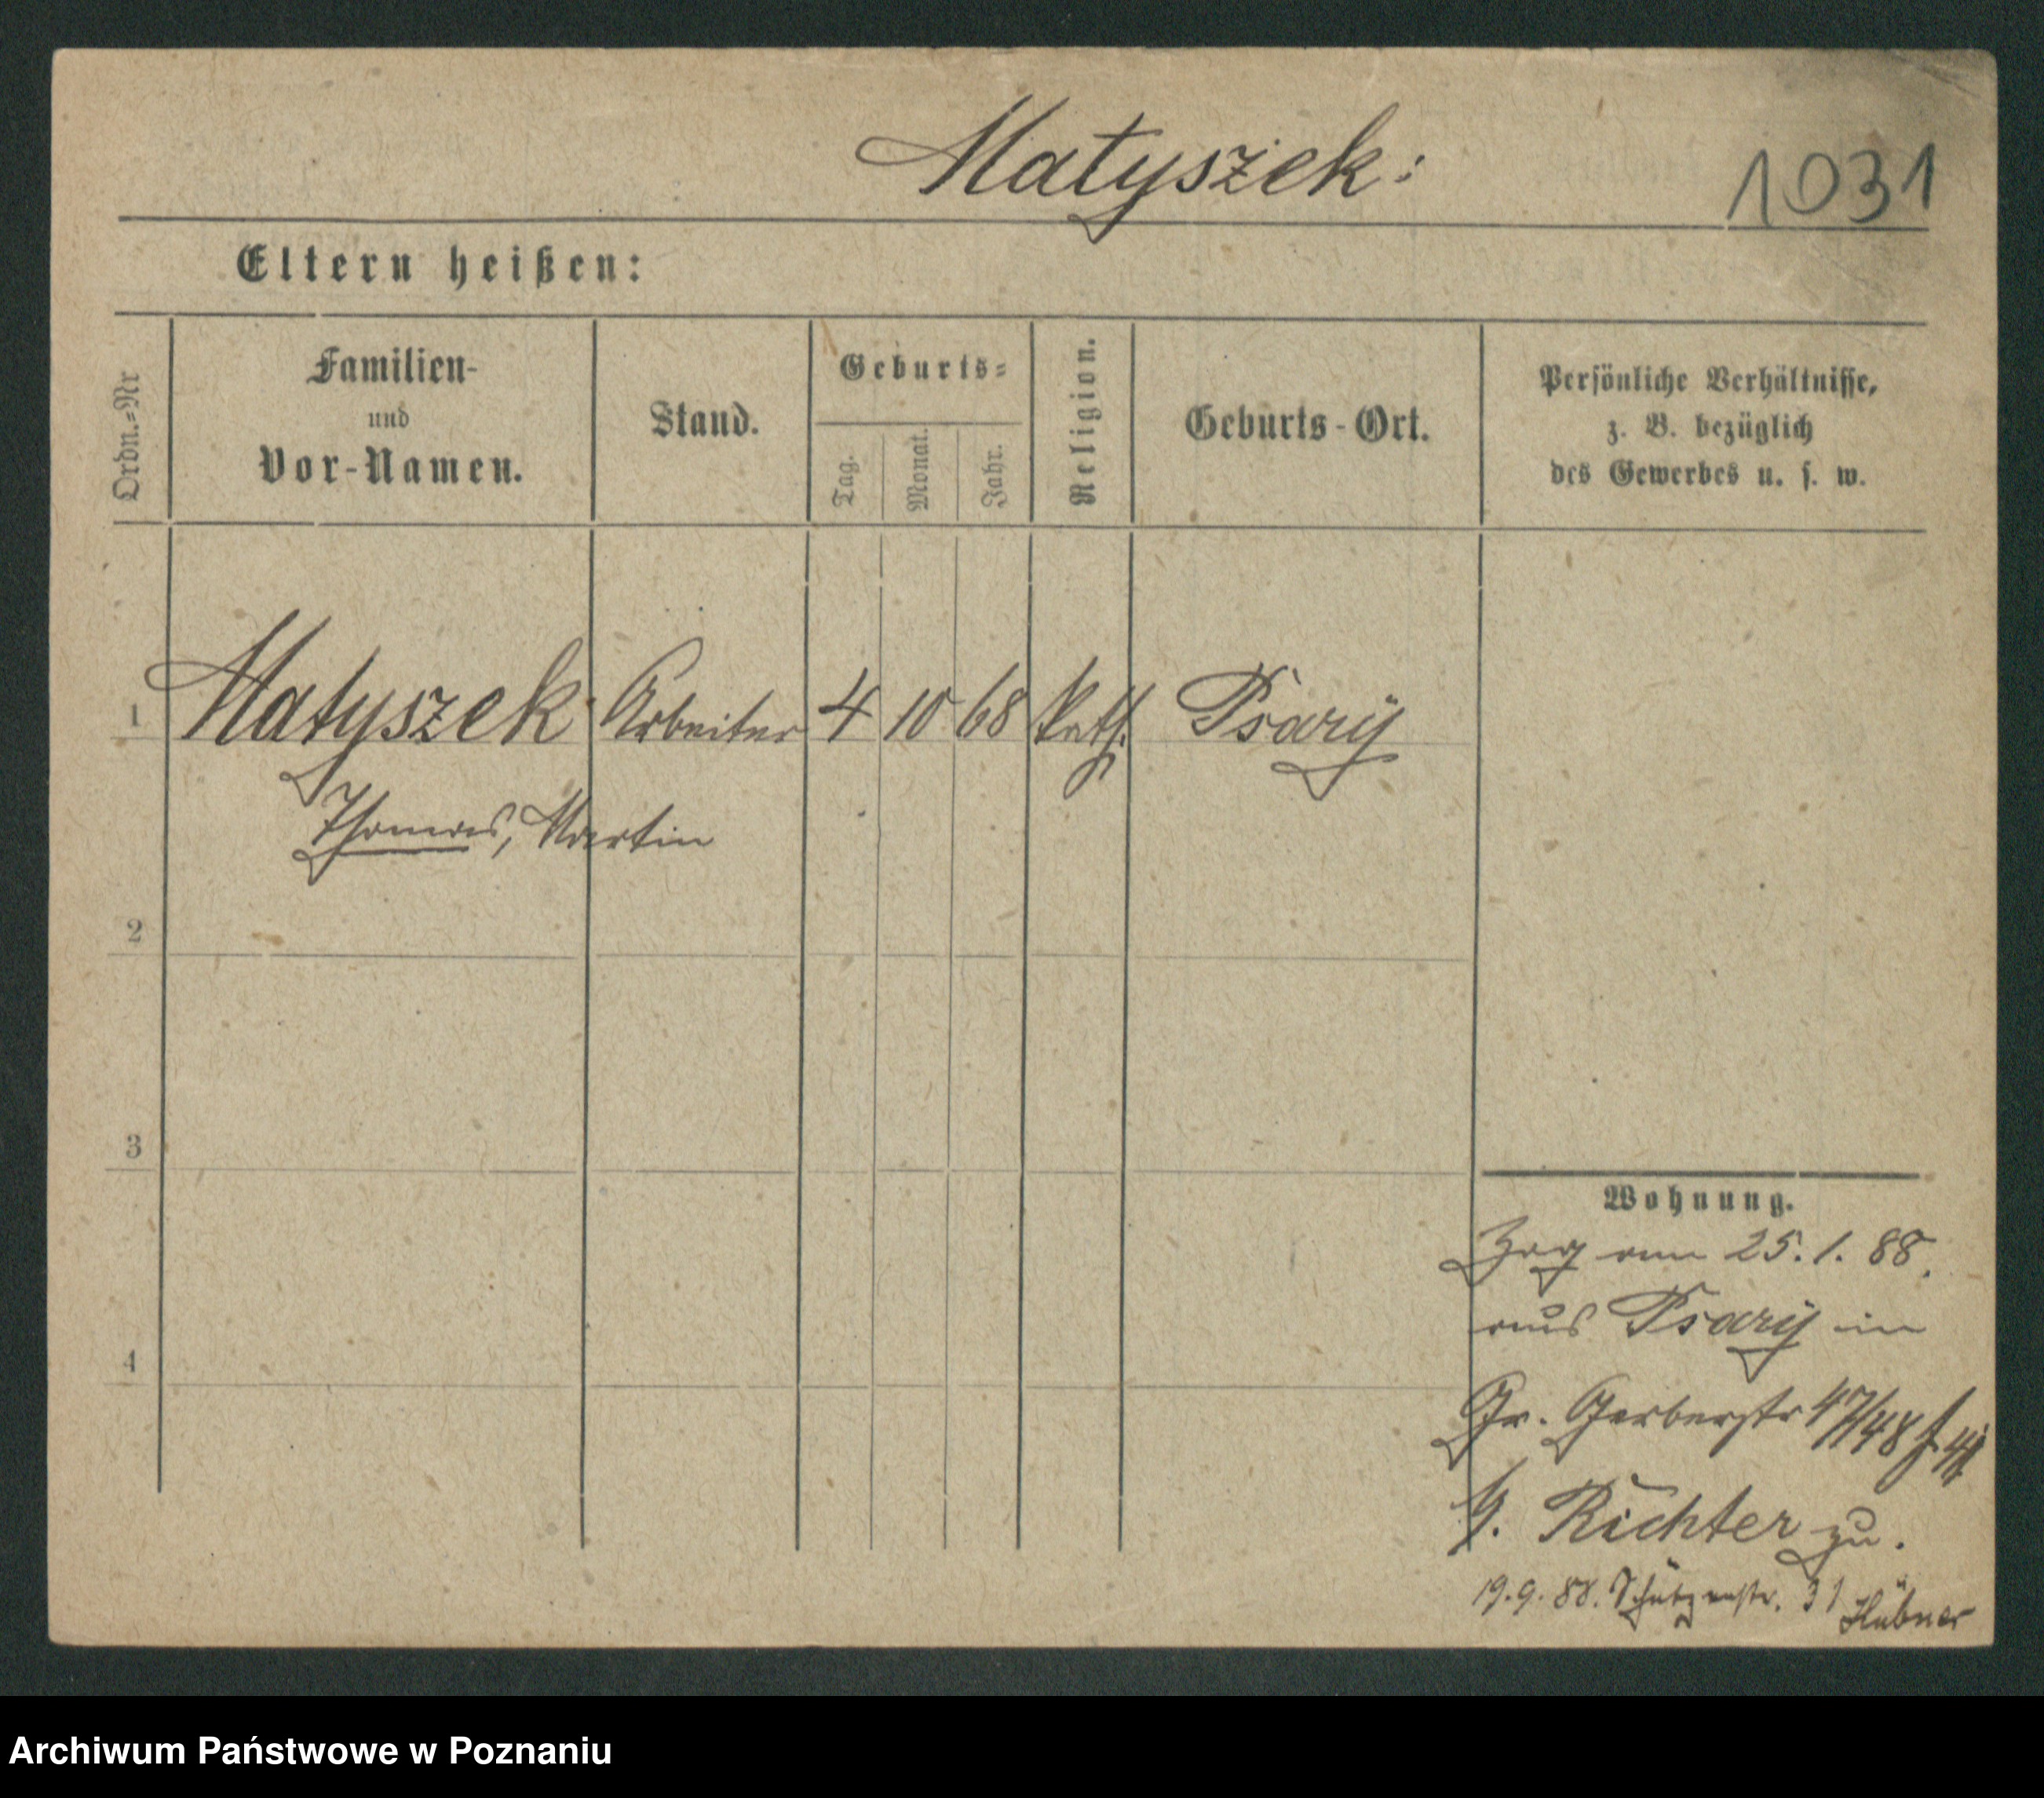 Matyszek:
1031
Eltern heißen:
Ordn.=Nr
Familien-
und
Vor-Namen.
Stand.
Geburts=
Tag.
Monat.
Jahr.
Religion.
Geburts-Ort.
Persönliche Verhältnisse,
z. B. bezüglich
des Gewerbes u. s. w.
1 Matyszek Arbeiter 4 10 68 kath. Psary
Thomas, Martin
2
3
4
Wohnung.
Zog am 25.1.88.
aus Psary in
Gr. Gerberstr 47/48
Richter zu.
19.9.88. Schützenstr. 31 Hübner
Archiwum Państwowe w Poznaniu